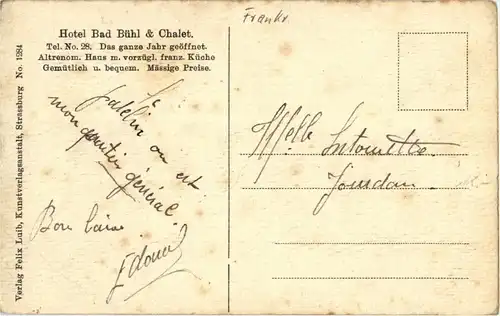 Frankr.
Hotel Bad Bühl & Chalet.
Tel. No. 28. Das ganze Jahr geöffnet.
Altrenom. Haus m. vorzügl. franz. Küche
Gemütlich u. bequem. Mässige Preise.
on est
mon quartier général.
Bon baiser
Edouard
Melle Antoinette
Jourdan
Verlag Felix Luib, Kunstverlagsanstalt, Strassburg No. 1284